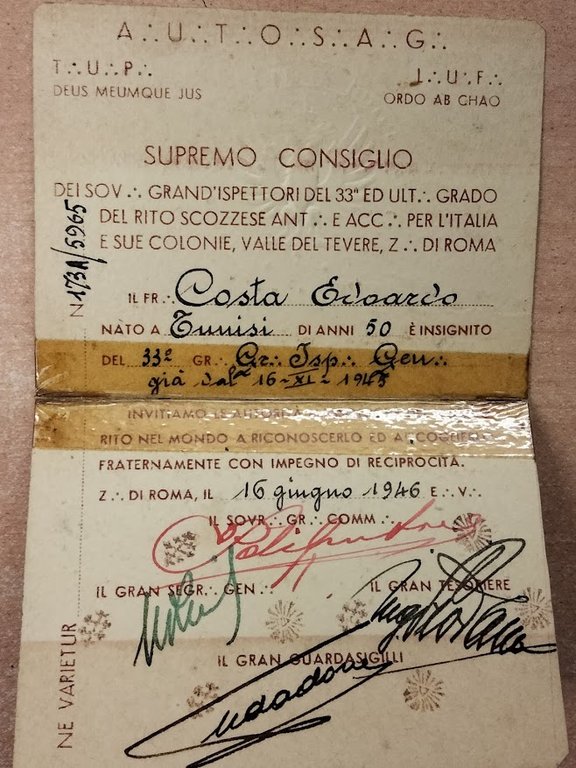 A∴U∴T∴O∴S∴A∴G∴
T∴U∴P∴
DEUS MEUMQUE JUS
I∴U∴F∴
ORDO AB CHAO
SUPREMO CONSIGLIO
DEI SOV∴ GRAND'ISPETTORI DEL 33º ED ULT∴ GRADO
DEL RITO SCOZZESE ANT∴ E ACC∴ PER L'ITALIA
E SUE COLONIE, VALLE DEL TEVERE, Z∴ DI ROMA
N 173A/5965
IL FR∴ Costa Edoardo
NATO A Tunisi DI ANNI 50 È INSIGNITO
DEL 33º GR∴ Gr∴ Isp∴ Gen∴
già dal 16-XI-
INVITIAMO LE AUTORITÀ
RITO NEL MONDO A RICONOSCERLO ED ACCOGLIERLO
FRATERNAMENTE CON IMPEGNO DI RECIPROCITÀ.
Z∴ DI ROMA, IL 16 giugno 1946 E∴V∴
IL SOVR∴ GR∴ COMM∴
IL GRAN SEGR∴ GEN∴
IL GRAN TESORIERE
IL GRAN GUARDASIGILLI
NE VARIETUR